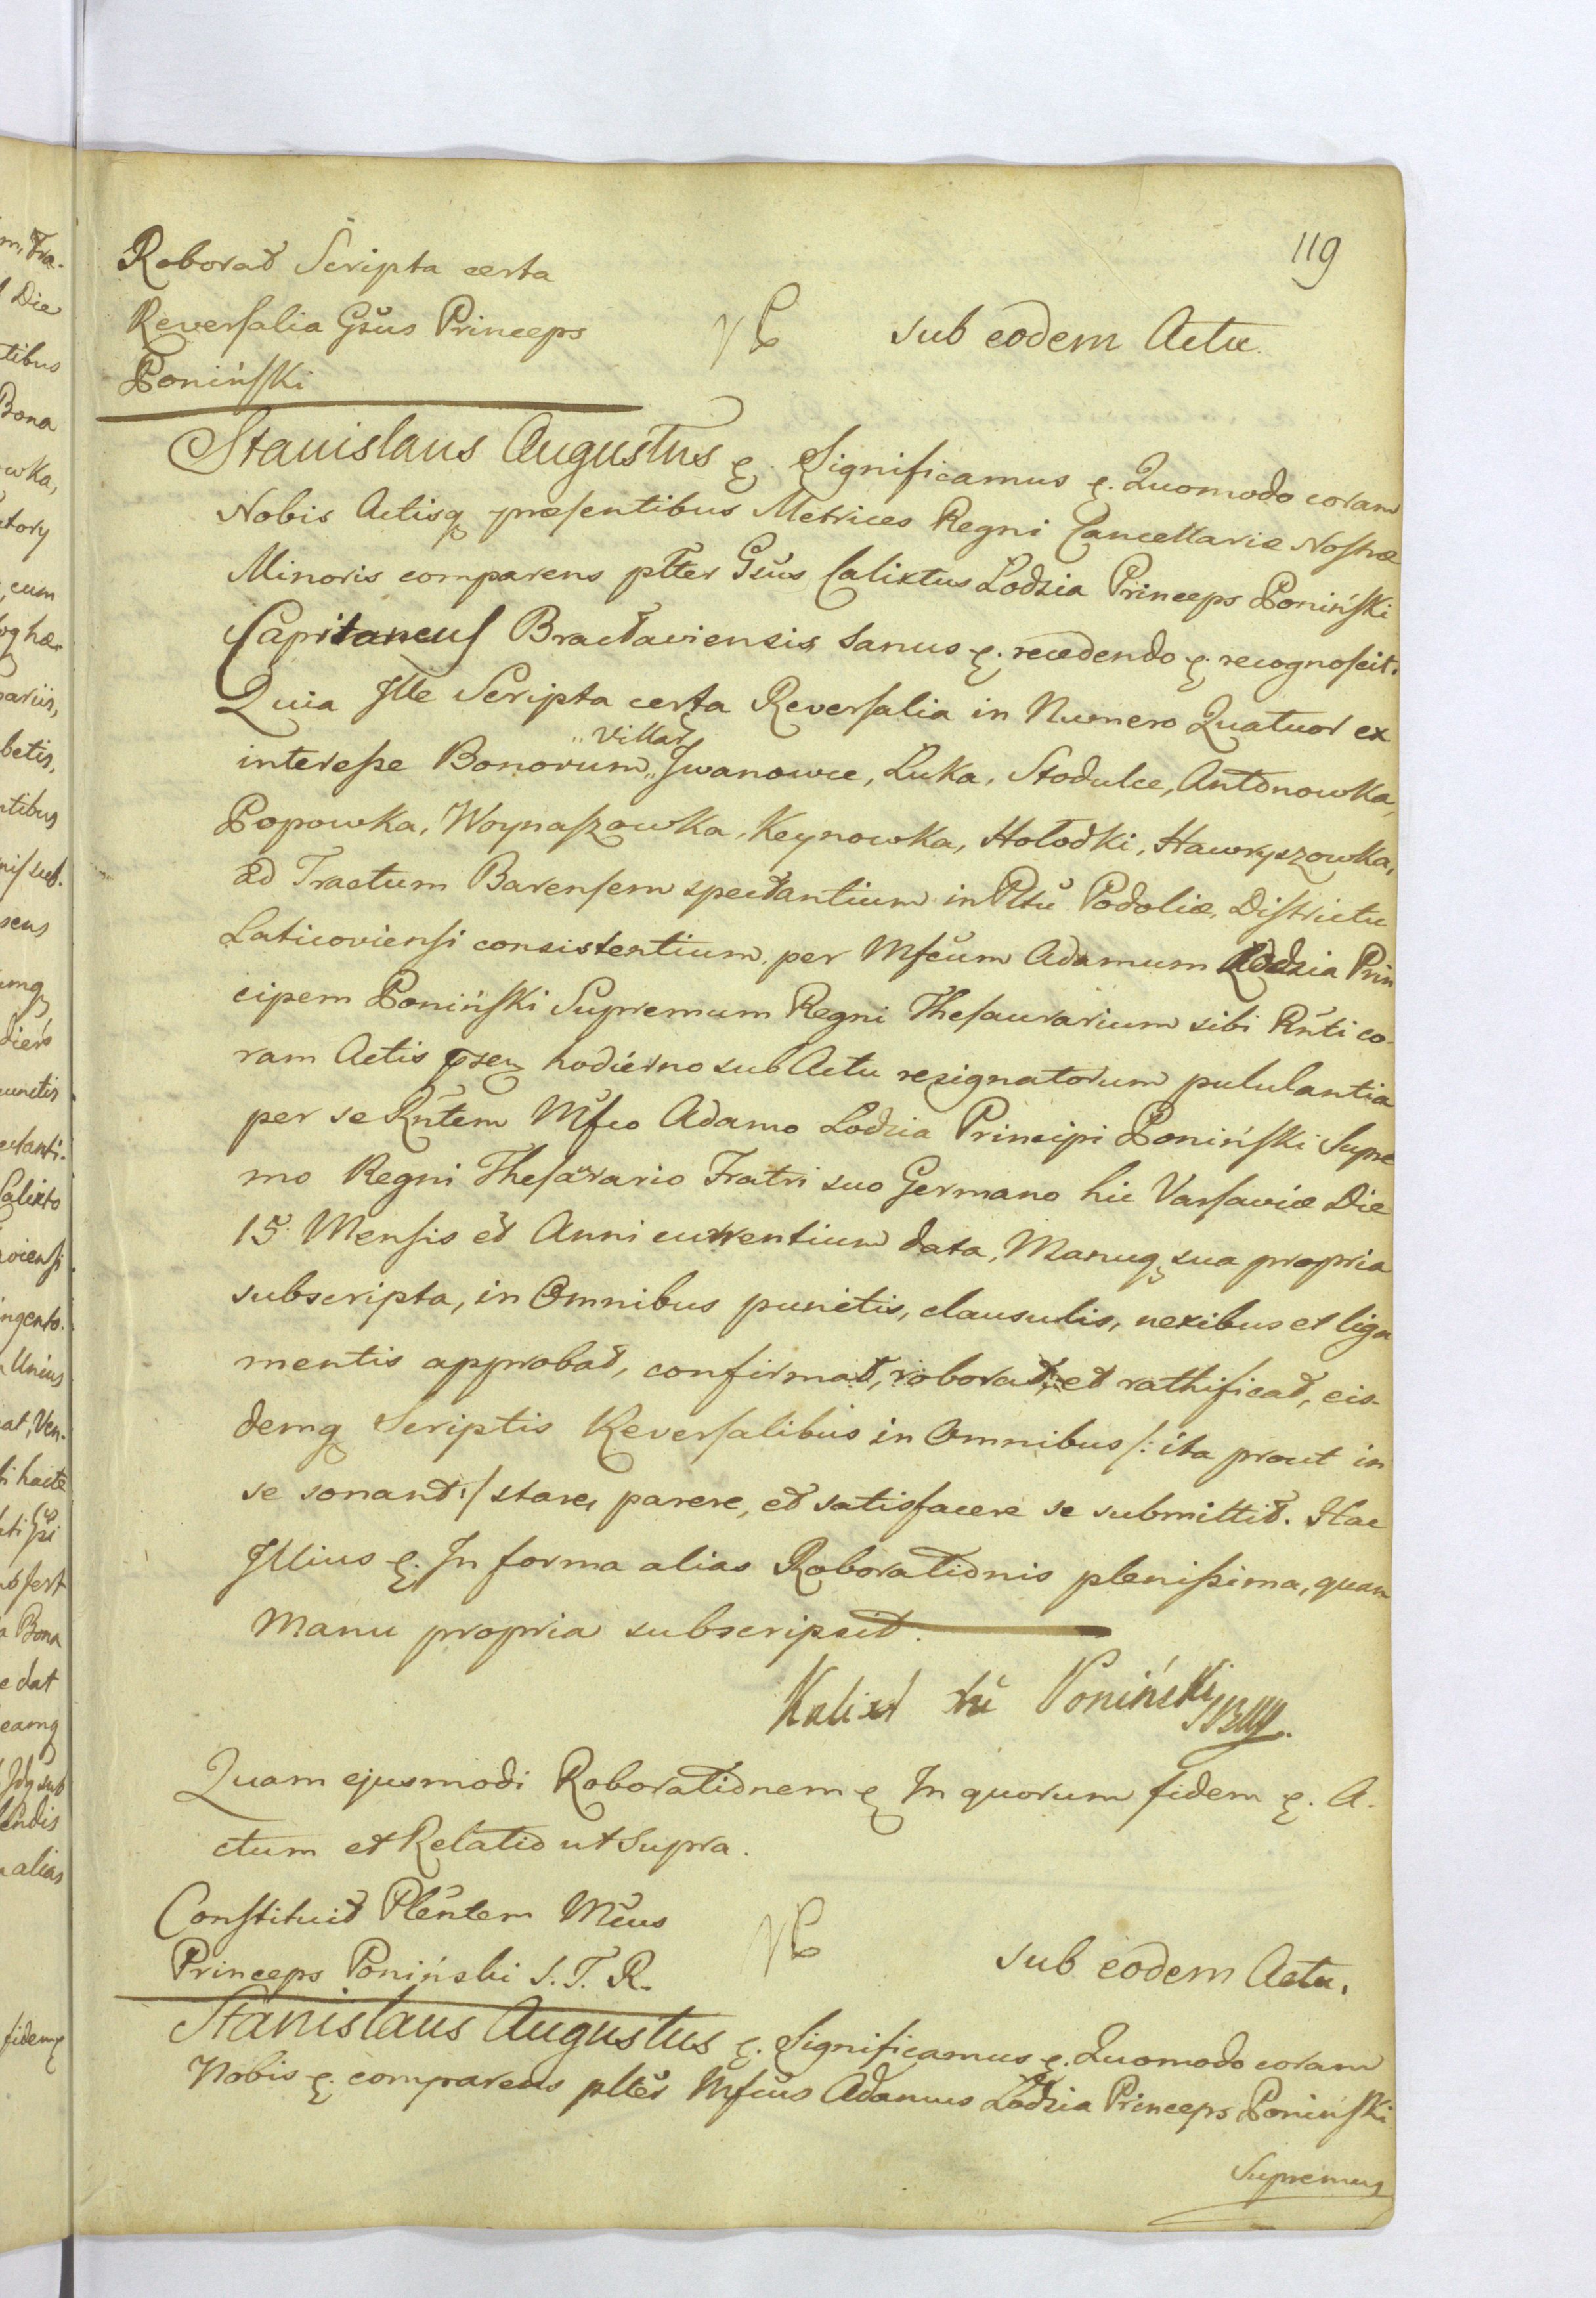 119
Roborat Scripta certa
Reversalia Gsus Princeps
Poniński
sub eodem Actu.
Stanislaus Augustus &. Significamus &. Quomodo coram
Nobis Actisq præsentibus Metrices Regni Cancellariæ Nostræ
Minoris comparens plter Gsus Calixtus Lodzia Princeps Poniński
Capitaneus Braclaviensis sanus &. recedendo &. recognoscit.
Quia Ille Scripta certa Reversalia in Numero Quatuor ex
interesse Bonorum „Villar„ Jwanowce, Luka, Stodulce, Antonowka,
Popowka, Woynaszowka, Keynowka, Hołodki, Hawryszowka,
ad Tractum Barensem spectantium in Pltu Podoliæ, Districtu
Laticoviensi consistentium, per Mfcum Adamum Lodzia Prin
cipem Poniński Supremum Regni Thesaurarium sibi Rnti co-
ram Actis hodierno sub Actu resignatorum pululantia
per se Rntem Mfco Adamo Lodzia Principi Poniński Supre
mo Regni Thesaurario Fratri suo Germano hic Varsaviæ Die
15. Mensis et Anni currentium data, Manuq sua propria
subscripta, in Omnibus punctis, clausulis, nexibus et liga
mentis approbat, confirmat, roborat, et rathificat, eis-
demq Scriptis Reversalibus in Omnibus /: ita prout in
se sonant :/ stare, parere, et satisfacere se submittit. Hac
Illius &. In forma alias Roborationis plenissima, quam
Manu propria subscripsit.
Kalixt Xże Poniński
Quam ejusmodi Roborationem & In quorum fidem &. A-
ctum et Relatio ut supra.
Constituit Plentem Mcus
Princeps Poniński S. T. R.
sub eodem Actu.
Stanislaus Augustus &. Significamus &. Quomodo coram
Nobis &. comparens plter Mfcus Adamus Lodzia Princeps Poniński
Supremus